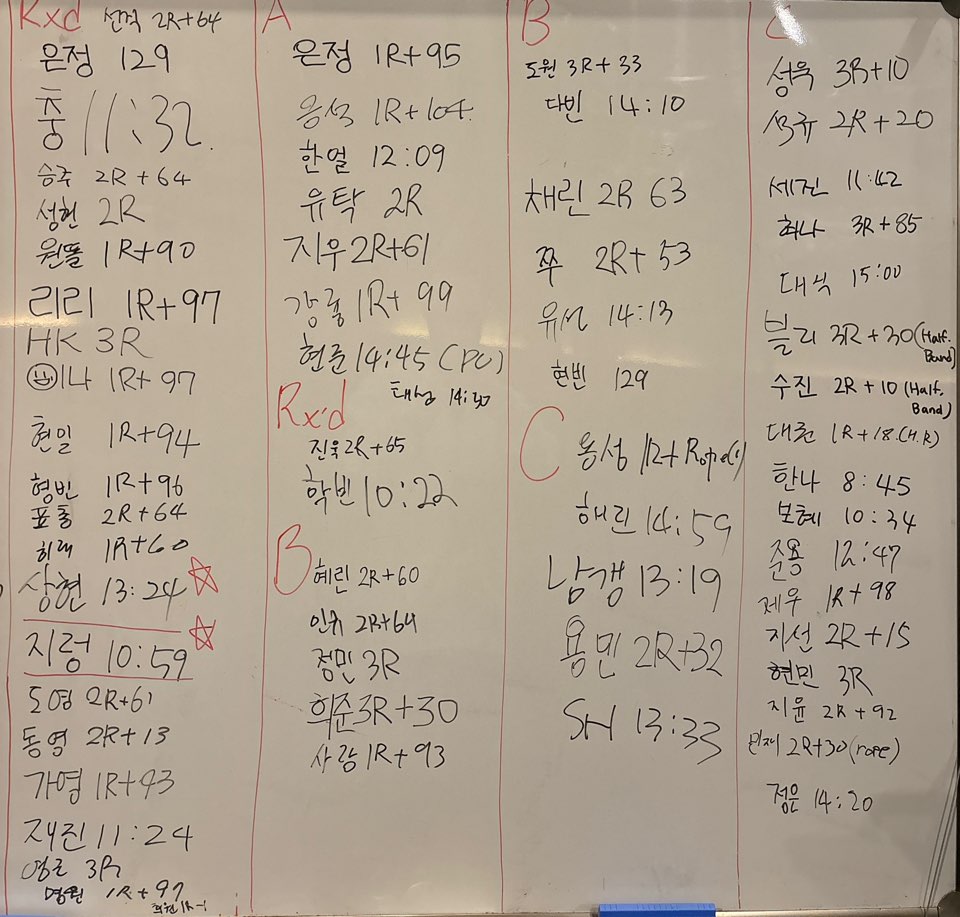 Rxd 선적 2R+64
은정 129
충 11:32
승주 2R+64
성현 2R
원똘 1R+90
리리 1R+97
HK 3R
이나 1R+97
현일 1R+94
형빈 1R+96
표흥 2R+64
희래 1R+60
상현 13:24
지렁 10:59
도영 2R+61
동영 2R+13
가영 1R+43
재진 11:24
영로 3R
명원 1R+97
1R-1
A
은정 1R+95
응석 1R+104
한얼 12:09
유탁 2R
지우 2R+61
강룡 1R+99
현준 14:45 (PU)
태성 14:50
Rx'd
진욱 2R+65
학빈 10:22
B
혜린 2R+60
인휘 2R+64
정민 3R
희준 3R+30
사랑 1R+93
B
도원 3R+33
다빈 14:10
채린 2R 63
쭈 2R+53
유선 14:13
현빈 129
C
용성 1R+Rope(1)
해린 14:59
남갱 13:19
용민 2R+32
SH 13:33
C
성욱 3R+10
석규 2R+20
세진 11:42
희나 3R+85
대닉 15:00
블리 3R+30 (Half. Band)
수진 2R+10 (Half. Band)
대훈 1R+18.(H.R)
한나 8:45
보혜 10:34
준용 12:47
제우 1R+98
지선 2R+15
현민 3R
지윤 2R+92
민재 2R+30 (rope)
정은 14:20